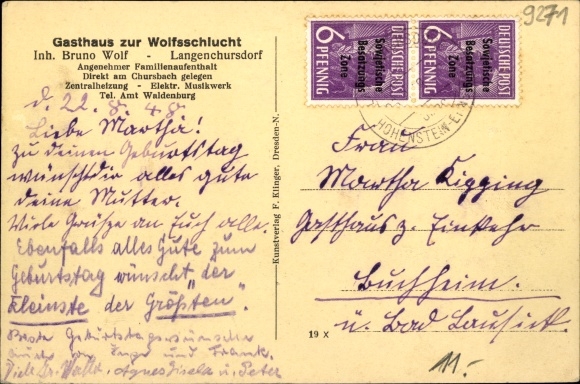 9271
Gasthaus zur Wolfsschlucht
Inh. Bruno Wolf - Langenchursdorf
Angenehmer Familienaufenthalt
Direkt am Chursbach gelegen
Zentralheizung - Elektr. Musikwerk
Tel. Amt Waldenburg
d. 22. 8. 48.
Liebe Martha!
zu deinem Geburtstag
wünscht dir alles gute
deine Mutter.
Viele Grüsse an Euch alle.
Ebenfalls alles Gute zum
Geburtstag wünscht "der
Kleinste der Größten".
Beste Geburtstagswünsche
auch von Inge und Frank.
Viele Gr. Agnes Gisela u. Peter
Kunstverlag F. Klinger, Dresden-N.
19 x
6 PFENNIG
DEUTSCHE POST
Sowjetische
Besatzungs
Zone
6 PFENNIG
DEUTSCHE POST
Sowjetische
Besatzungs
Zone
HOHENSTEIN-ER
Frau
Martha Kipping
Gasthaus z. Einkehr
Buchheim.
ü. Bad Lausick.
11.-